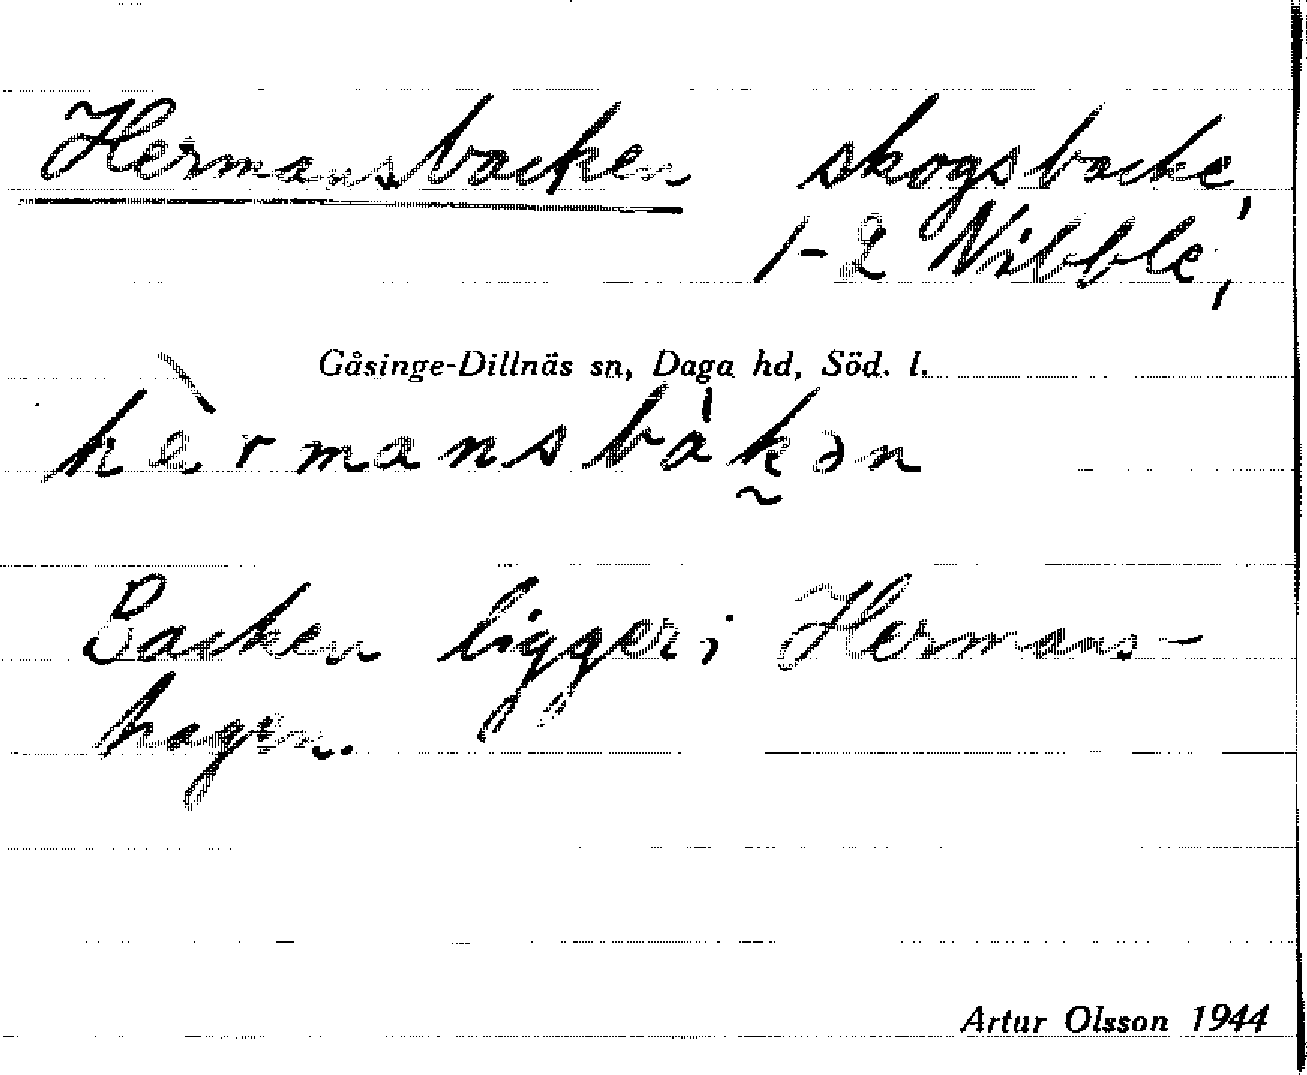 Hermansbacken skogsbacke,
1-2 Nibble,
Gåsinge-Dillnäs sn, Daga hd, Söd. l.
hèrmansbàk̰ən
Backen ligger i Hermans-
hagen.
Artur Olsson 1944